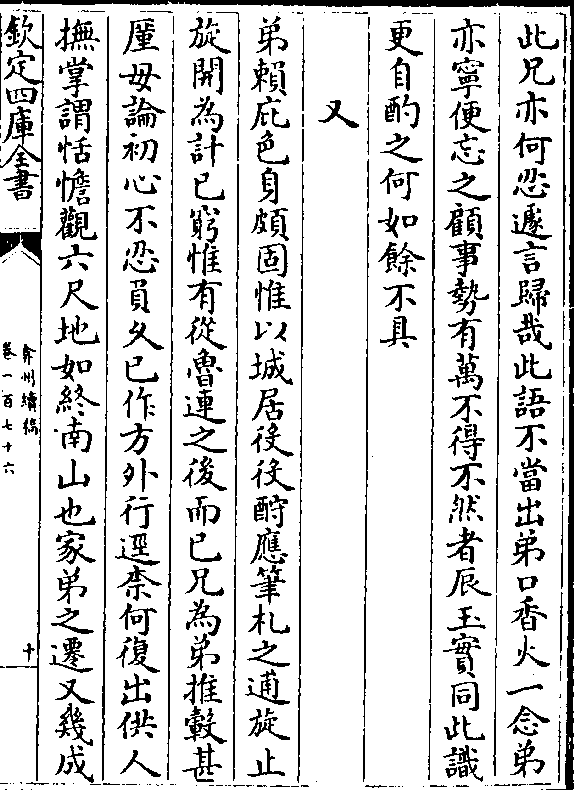 此兄亦何忍遽言歸哉此語不當出弟口香火一念弟
亦寧便忘之顧事勢有萬不得不然者辰玉實同此識
更自酌之何如餘不具
又
弟賴庇色身頗固惟以城居役役酧應筆札之逋旋止
旋開為計已窮惟有從魯連之後而已兄為弟推轂甚
厪毋論初心不忍負夊已作方外行逕柰何復出供人
撫掌謂恬憺觀六尺地如終南山也家弟之遷又幾成
欽定四庫全書
弇州續稿
卷一百七十六
十